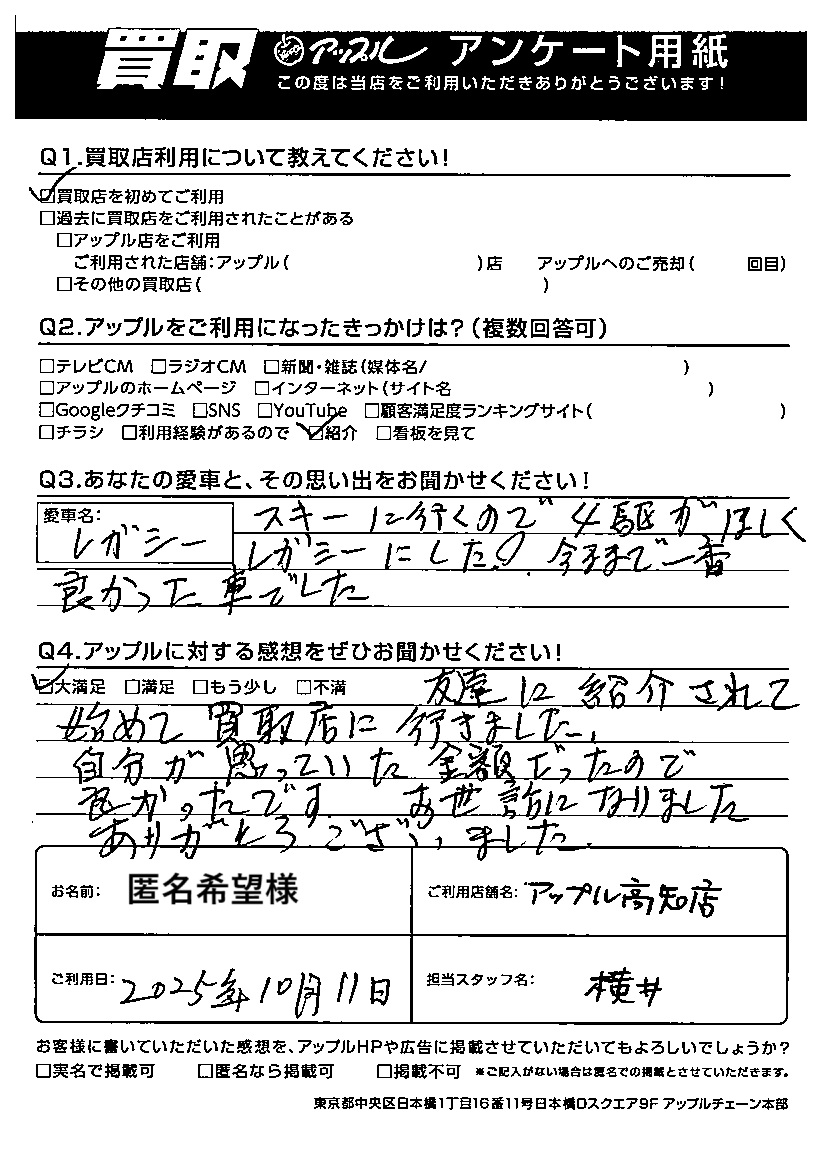 買取 アップル アンケート用紙
この度は当店をご利用いただきありがとうございます!
Q1.買取店利用について教えてください!
☑買取店を初めてご利用
□過去に買取店をご利用されたことがある
□アップル店をご利用
ご利用された店舗:アップル( )店 アップルへのご売却( 回目)
□その他の買取店( )
Q2.アップルをご利用になったきっかけは?(複数回答可)
□テレビCM □ラジオCM □新聞・雑誌(媒体名/ )
□アップルのホームページ □インターネット(サイト名 )
□Googleクチコミ □SNS □YouTube □顧客満足度ランキングサイト( )
□チラシ □利用経験があるので ☑紹介 □看板を見て
Q3.あなたの愛車と、その思い出をお聞かせください!
愛車名:
レガシー
スキーに行くので 4駆がほしく
レガシーにした! 今まで一番
良かった車でした
Q4.アップルに対する感想をぜひお聞かせください!
☑大満足 □満足 □もう少し □不満
友達に紹介されて
始めて買取店に行きました、
自分が思っていた金額だったので
良かったです お世話になりました
ありがとうございました
お名前: 匿名希望様
ご利用店舗名: アップル高知店
ご利用日: 2025年10月11日
担当スタッフ名: 横井
お客様に書いていただいた感想を、アップルHPや広告に掲載させていただいてもよろしいでしょうか?
□実名で掲載可 □匿名なら掲載可 □掲載不可 ※ご記入がない場合は匿名での掲載とさせていただきます。
東京都中央区日本橋1丁目16番11号日本橋Dスクエア9F アップルチェーン本部